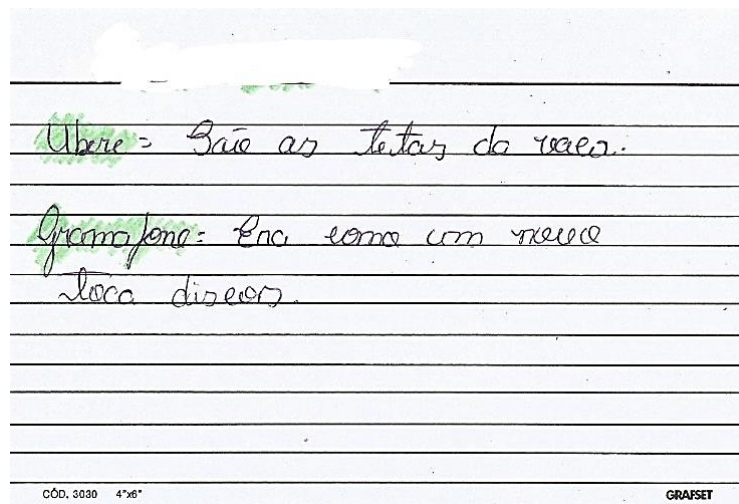 Ubere = São as tetas da vaca.
Gramofone = Era como um novo
toca discos.
CÓD. 3030 4"x6" GRAFSET